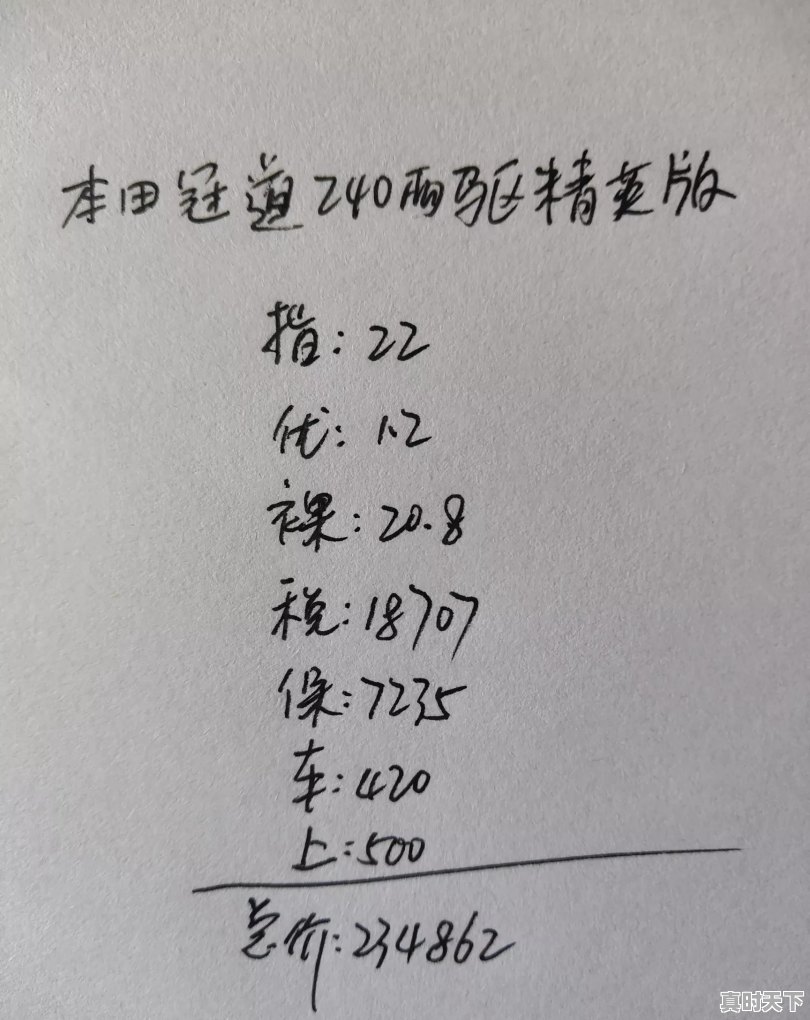 本田冠道240两驱精英版
指:22
优:1.2
裸:20.8
税:18707
保:7235
车:420
上:500
总价:234862
真时天下